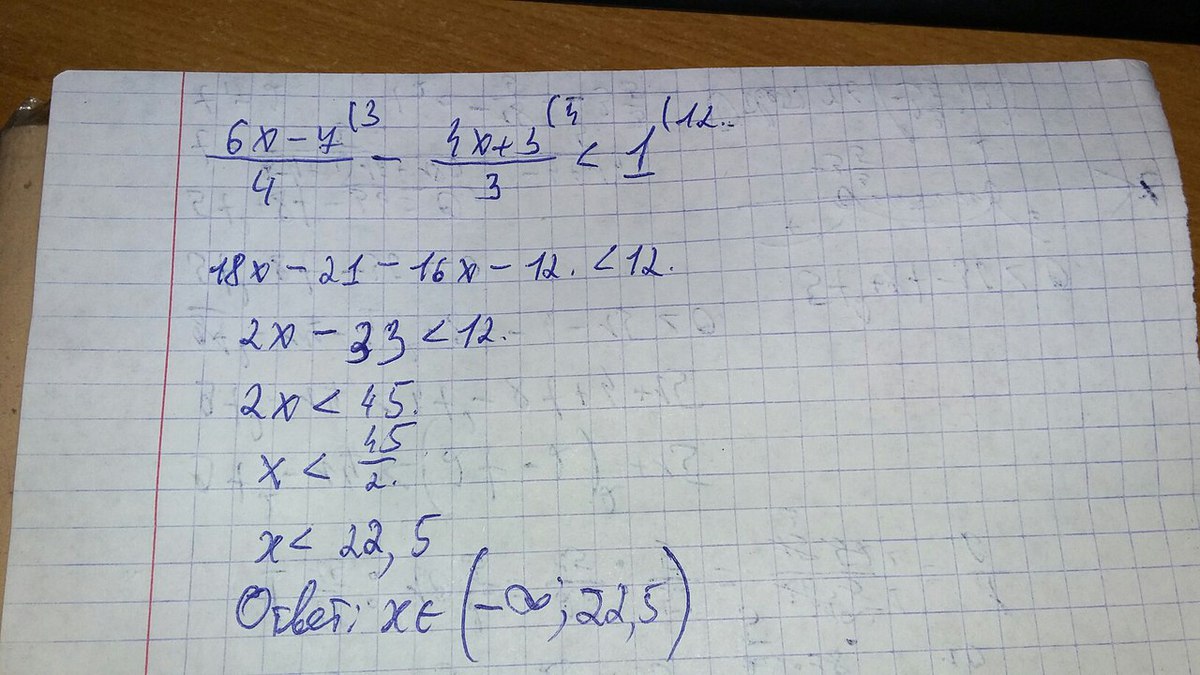 (6x-7)/4 (3 - (4x+3)/3 (4 < 1 (12.
18x - 21 - 16x - 12. < 12.
2x - 33 < 12.
2x < 45.
x < 45/2.
x < 22,5
Ответ: x ∈ (-∞; 22,5)